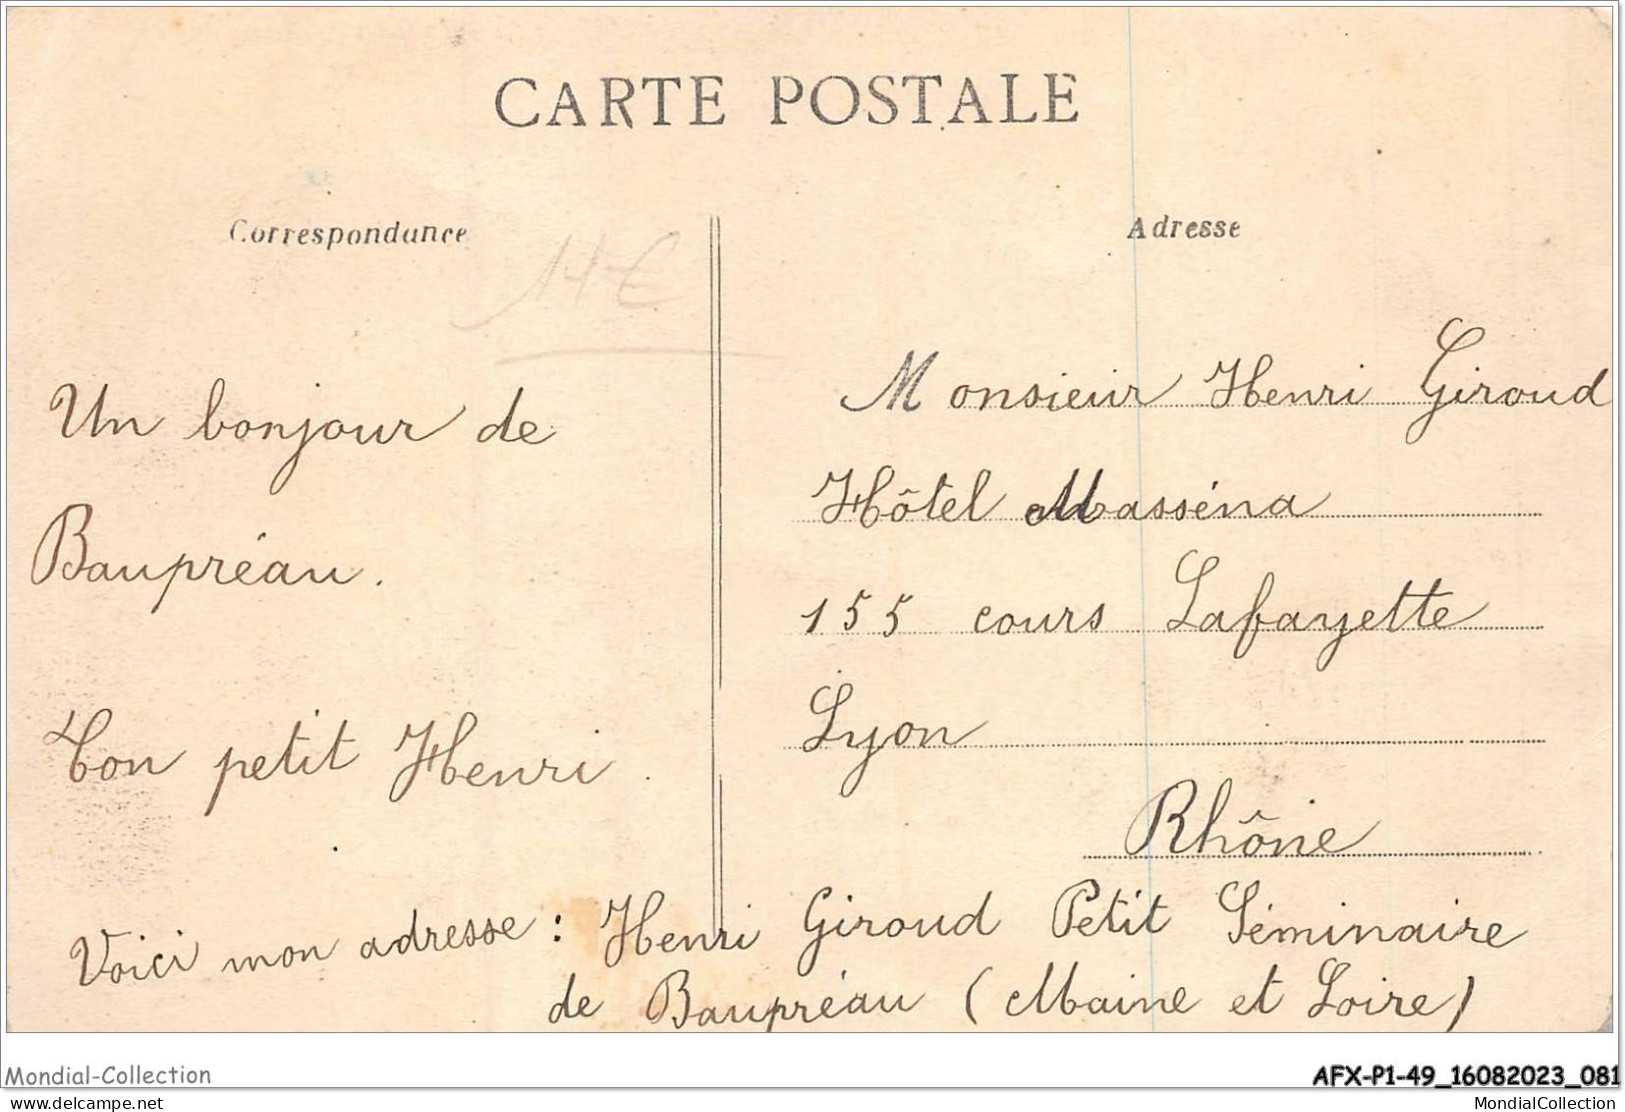 CARTE POSTALE
Correspondance
Adresse
14€
Un bonjour de
Baupréau.
Ton petit Henri.
Monsieur Henri Giroud
Hôtel Masséna
155 cours Lafayette
Lyon
Rhône
Voici mon adresse : Henri Giroud Petit Séminaire
de Baupréau (Maine et Loire)
Mondial-Collection
AFX-P1-49_16082023_081
www.delcampe.net
MondialCollection